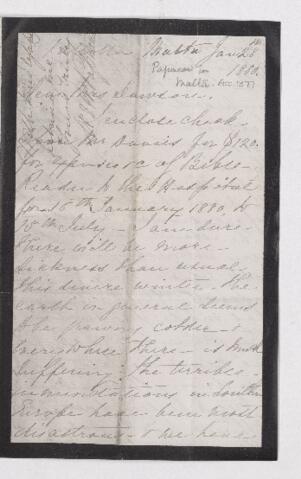 Malta Jan 28th
1880.
Papers in
Malta
Dear Mrs Dawson.
I enclose check
from Mr Davies for $120.
for expenses &c of Bible
Reader to the Hospital
for 15th January 1880 to
15th July - I am sure
there will be more
sickness than usual
this severe winter. The
earth in general seems
to be growing colder &
everywhere there is much
suffering. The terrible
inundations in Southern
Europe have been most
disastrous & we have